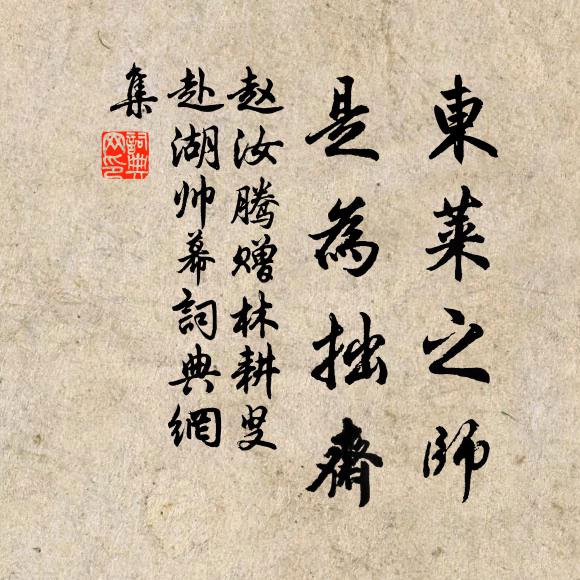 東萊之師
是為拙齋
赵汝騰贈林耕叟
赴湖帅幕詞典網
集
詞典
网印